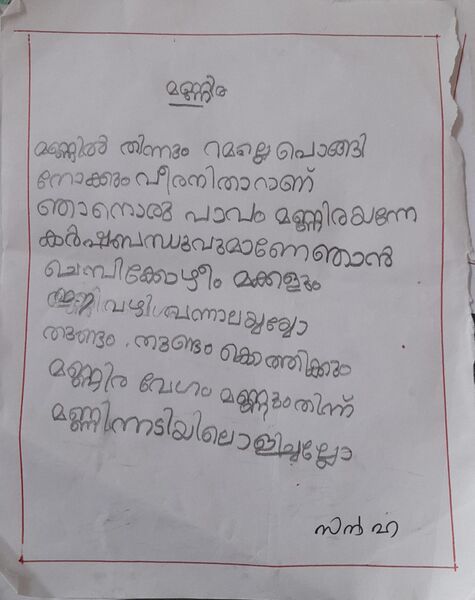 മണ്ണിര
മണ്ണിൽ നിന്നും റമല്ലെ പൊങ്ങി
നോക്കും വീരനിതാറാണ്
ഞാനൊരു പാവം മണ്ണിരയന്നേ
കർഷബന്ധുവുമാണേഞാൻ
ചെമ്പിക്കോഴീം മക്കളും
വന്നാലയ്യയ്യോ
തുണ്ടം തുണ്ടം കൊത്തിക്കും
മണ്ണിര വേഗം മണ്ണുംതിന്ന്
മണ്ണിന്നടിയിലൊളിച്ചല്ലോ
സിൻഹ